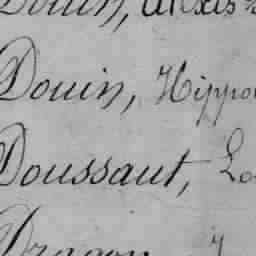 Douin, Alexis
Douin, Hippo
Doussaut, Lo
Dragon